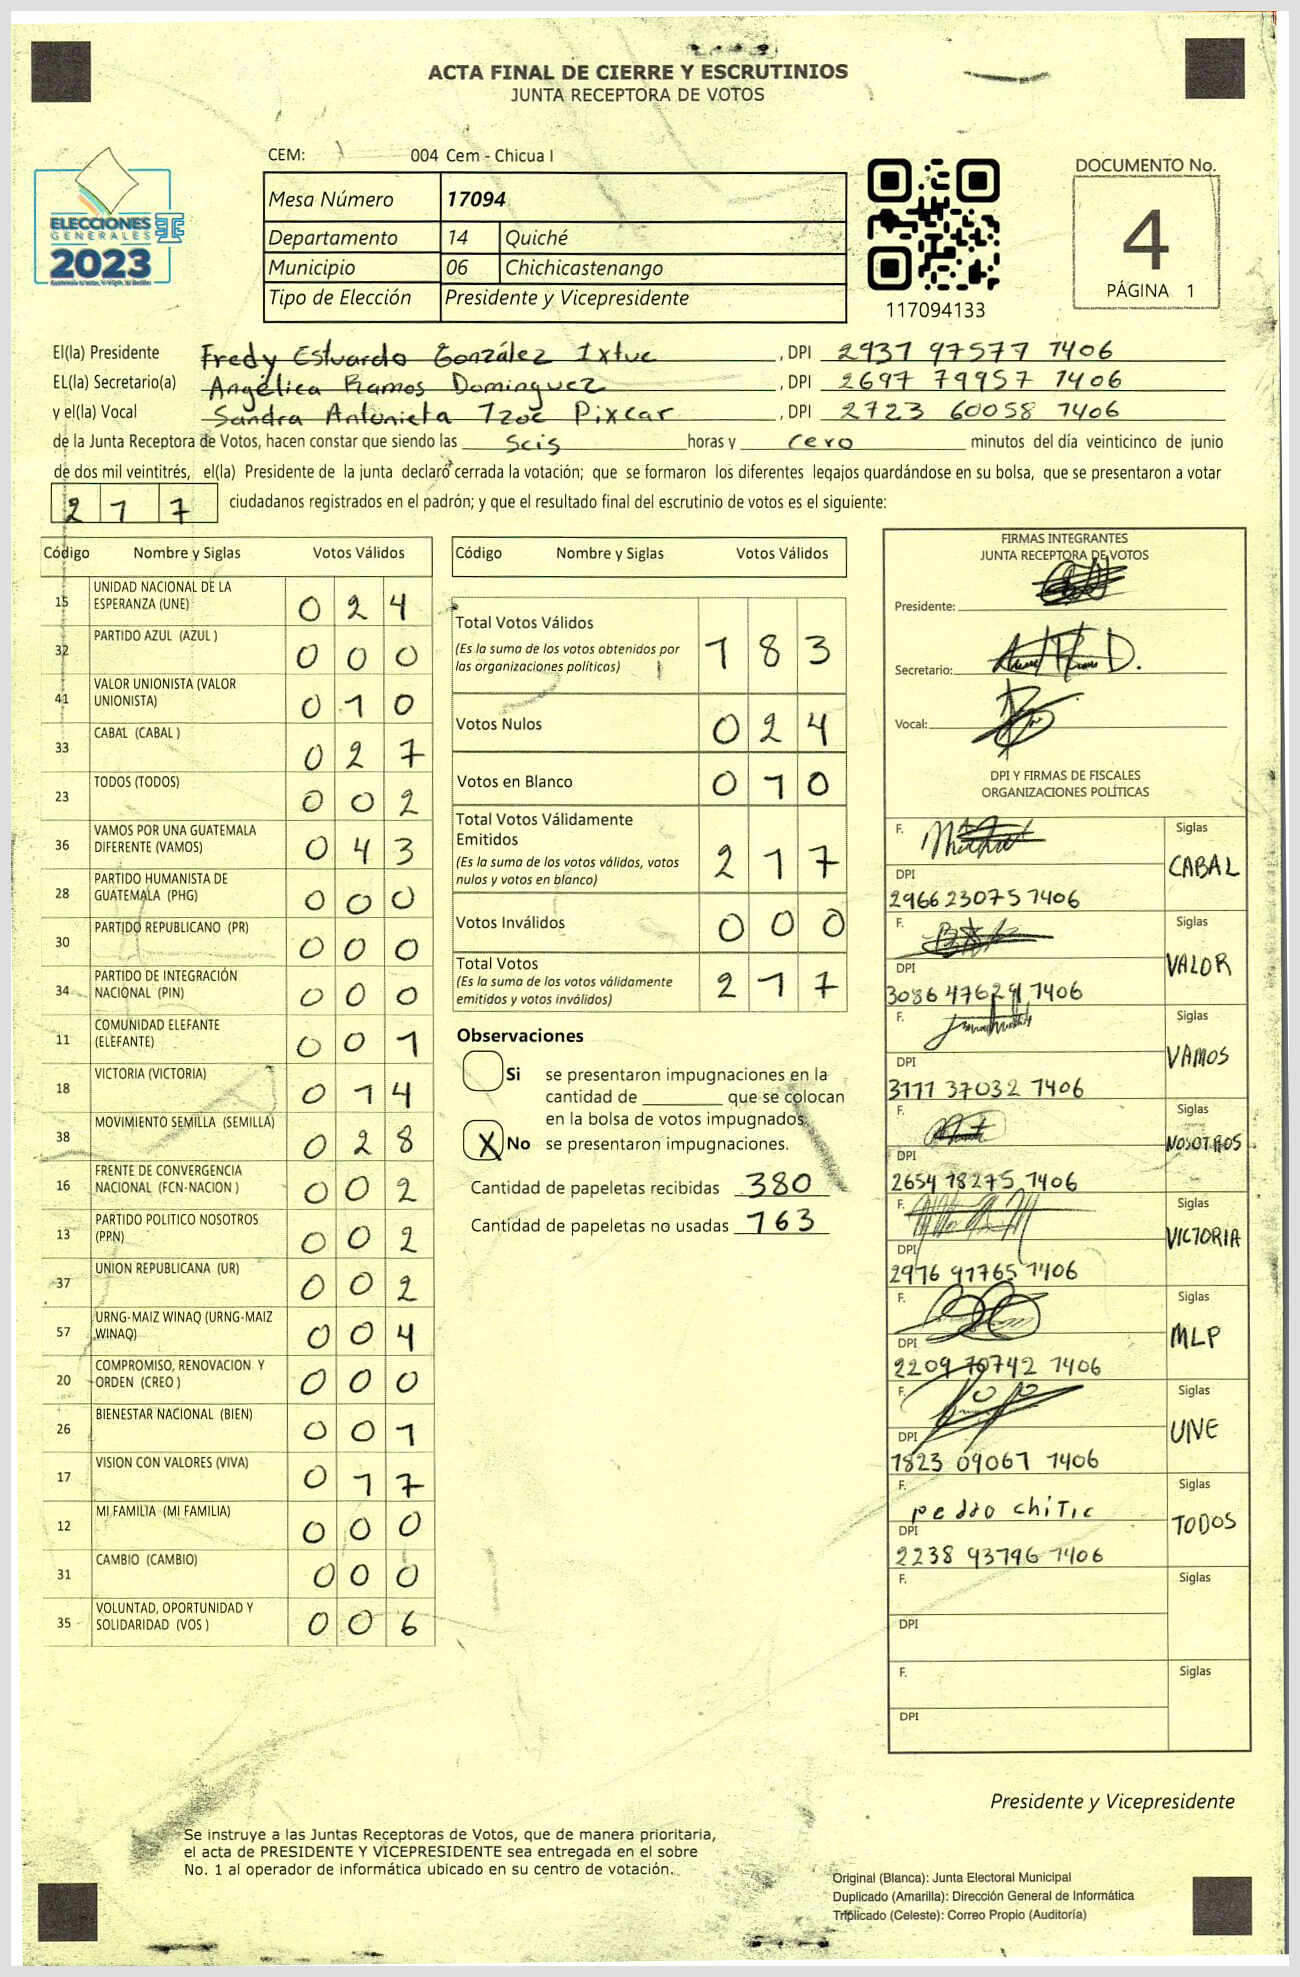 ACTA FINAL DE CIERRE Y ESCRUTINIOS
JUNTA RECEPTORA DE VOTOS
CEM: 004 Cem - Chicua I
Mesa Número 17094
Departamento 14 Quiché
Municipio 06 Chichicastenango
Tipo de Elección Presidente y Vicepresidente
ELECCIONES
GENERALES
2023
117094133
DOCUMENTO No.
4
PÁGINA 1
El(la) Presidente Fredy Estuardo González Ixtuc , DPI 2937 97577 1406
EL(la) Secretario(a) Angélica Ramos Dominguez , DPI 2697 79957 1406
y el(la) Vocal Sandra Antonieta Tzoc Pixcar , DPI 2723 60058 1406
de la Junta Receptora de Votos, hacen constar que siendo las Seis horas y Cero minutos del día veinticinco de junio
de dos mil veintitrés, el(la) Presidente de la junta declaró cerrada la votación; que se formaron los diferentes legajos guardándose en su bolsa, que se presentaron a votar
217 ciudadanos registrados en el padrón; y que el resultado final del escrutinio de votos es el siguiente:
Código Nombre y Siglas Votos Válidos
15 UNIDAD NACIONAL DE LA ESPERANZA (UNE) 024
32 PARTIDO AZUL (AZUL ) 000
41 VALOR UNIONISTA (VALOR UNIONISTA) 010
33 CABAL (CABAL ) 027
23 TODOS (TODOS) 002
36 VAMOS POR UNA GUATEMALA DIFERENTE (VAMOS) 043
28 PARTIDO HUMANISTA DE GUATEMALA (PHG) 000
30 PARTIDO REPUBLICANO (PR) 000
34 PARTIDO DE INTEGRACIÓN NACIONAL (PIN) 000
11 COMUNIDAD ELEFANTE (ELEFANTE) 001
18 VICTORIA (VICTORIA) 014
38 MOVIMIENTO SEMILLA (SEMILLA) 028
16 FRENTE DE CONVERGENCIA NACIONAL (FCN-NACION ) 002
13 PARTIDO POLITICO NOSOTROS (PPN) 002
37 UNION REPUBLICANA (UR) 002
57 URNG-MAIZ WINAQ (URNG-MAIZ WINAQ) 004
20 COMPROMISO, RENOVACION Y ORDEN (CREO ) 000
26 BIENESTAR NACIONAL (BIEN) 001
17 VISION CON VALORES (VIVA) 017
12 MI FAMILIA (MI FAMILIA) 000
31 CAMBIO (CAMBIO) 000
35 VOLUNTAD, OPORTUNIDAD Y SOLIDARIDAD (VOS ) 006
Código Nombre y Siglas Votos Válidos
Total Votos Válidos 183
(Es la suma de los votos obtenidos por
las organizaciones políticas)
Votos Nulos 024
Votos en Blanco 010
Total Votos Válidamente
Emitidos 217
(Es la suma de los votos válidos, votos
nulos y votos en blanco)
Votos Inválidos 000
Total Votos 217
(Es la suma de los votos válidamente
emitidos y votos inválidos)
Observaciones
Si se presentaron impugnaciones en la
cantidad de ________ que se colocan
en la bolsa de votos impugnados.
X No se presentaron impugnaciones.
Cantidad de papeletas recibidas 380
Cantidad de papeletas no usadas 163
FIRMAS INTEGRANTES
JUNTA RECEPTORA DE VOTOS
Presidente:
Secretario:
Vocal:
DPI Y FIRMAS DE FISCALES
ORGANIZACIONES POLÍTICAS
F. Siglas
CABAL
DPI
2966 23075 1406
F. Siglas
VALOR
DPI
3086 47629 1406
F. Siglas
VAMOS
DPI
3171 37032 1406
F. Siglas
NOSOTROS
DPI
2654 18275 1406
F. Siglas
VICTORIA
DPI
2976 91765 1406
F. Siglas
MLP
DPI
2209 70742 1406
F. Siglas
UNE
DPI
1823 09067 1406
F. Pedro Chitic Siglas
TODOS
DPI
2238 43796 1406
F. Siglas
DPI
F. Siglas
DPI
Presidente y Vicepresidente
Se instruye a las Juntas Receptoras de Votos, que de manera prioritaria,
el acta de PRESIDENTE Y VICEPRESIDENTE sea entregada en el sobre
No. 1 al operador de informática ubicado en su centro de votación.
Original (Blanca): Junta Electoral Municipal
Duplicado (Amarilla): Dirección General de Informática
Triplicado (Celeste): Correo Propio (Auditoría)